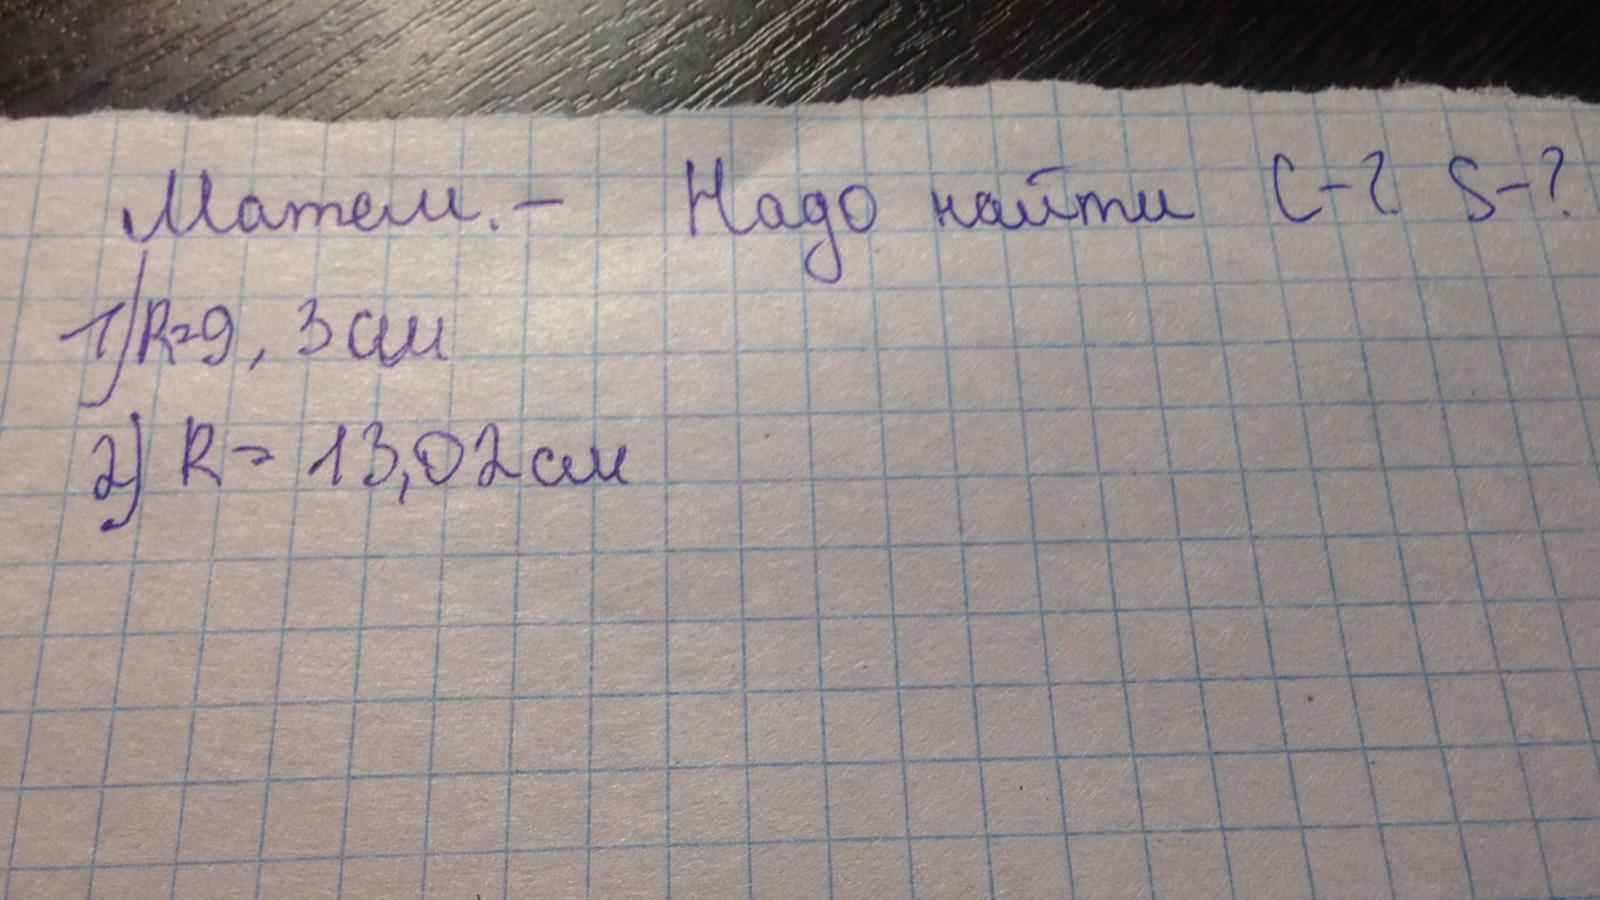 Матем. - Надо найти C-? S-?
1) R=9, 3 см
2) R= 13,02 см